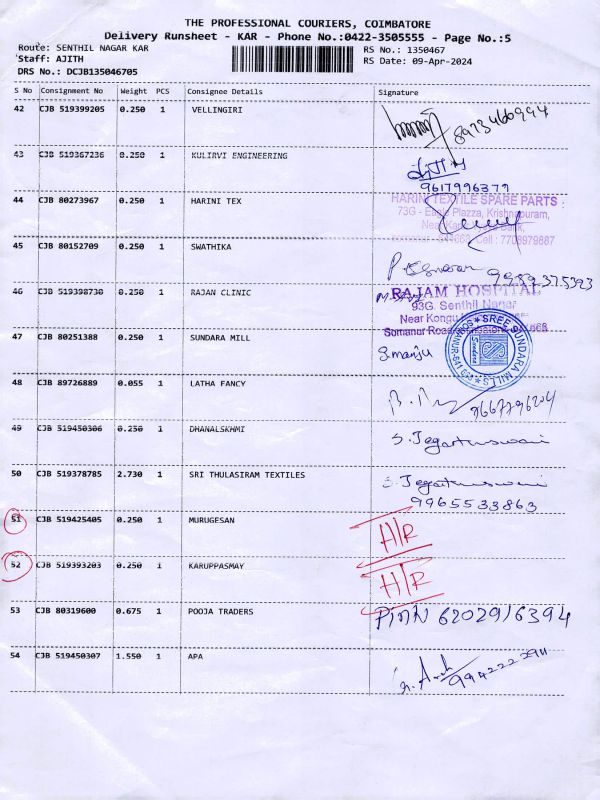 THE PROFESSIONAL COURIERS, COIMBATORE
Delivery Runsheet - KAR - Phone No.:0422-3505555 - Page No.:5
Route: SENTHIL NAGAR KAR RS No.: 1350467
Staff: AJITH RS Date: 09-Apr-2024
DRS No.: DCJB135046705
S No Consignment No Weight PCS Consignee Details Signature
42 CJB 519399205 0.250 1 VELLINGIRI
43 CJB 519367236 0.250 1 KULIRVI ENGINEERING
9617996379
44 CJB 80273967 0.250 1 HARINI TEX HARINI TEXTILE SPARE PARTS
73G - Plazza, Krishnapuram,
Cell : 7708979887
45 CJB 80152709 0.250 1 SWATHIKA
46 CJB 519398730 0.250 1 RAJAN CLINIC RAJAM HOSPITAL
93G. Senthil Nagar
Near Kongu
Somanur Road
47 CJB 80251388 0.250 1 SUNDARA MILL S.manju SREE SUNDARA MILLS
48 CJB 89726889 0.055 1 LATHA FANCY
49 CJB 519450306 0.250 1 DHANALSKHMI
50 CJB 519378785 2.730 1 SRI THULASIRAM TEXTILES
9965533863
51 CJB 519425405 0.250 1 MURUGESAN H/R
52 CJB 519393203 0.250 1 KARUPPASMAY H/R
53 CJB 80319600 0.675 1 POOJA TRADERS 6202916394
54 CJB 519450307 1.550 1 APA